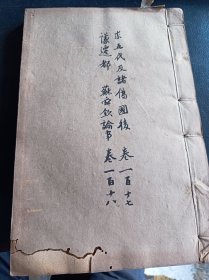 宗五代及諸僞國後 卷一百十七
議建都 蘇舜欽論事 卷一百十八